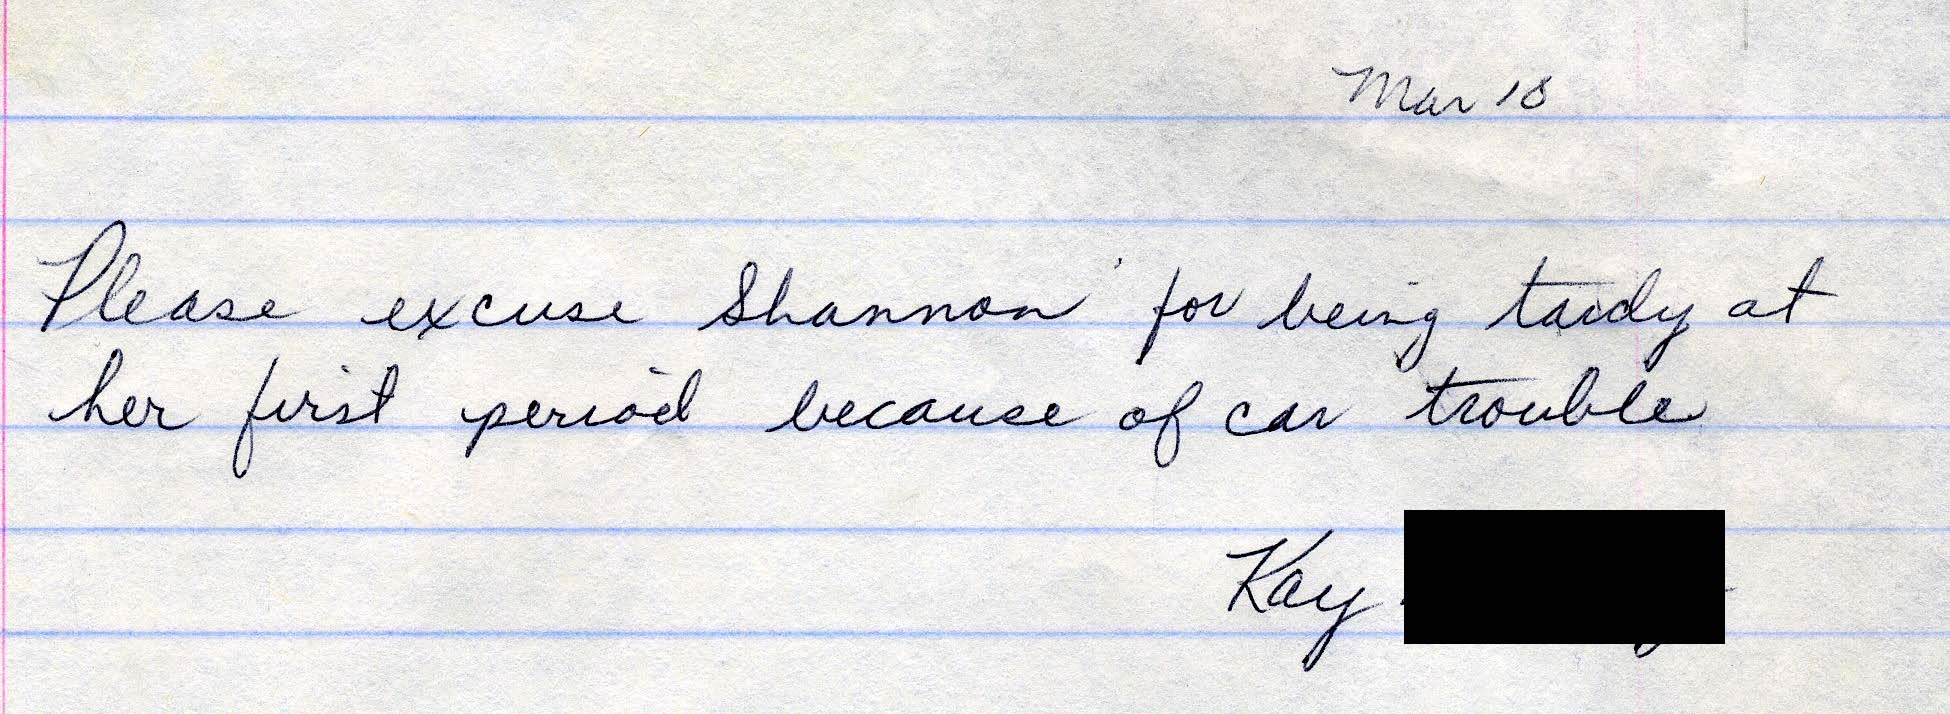 Mar 18
Please excuse Shannon for being tardy at
her first period because of car trouble
Kay